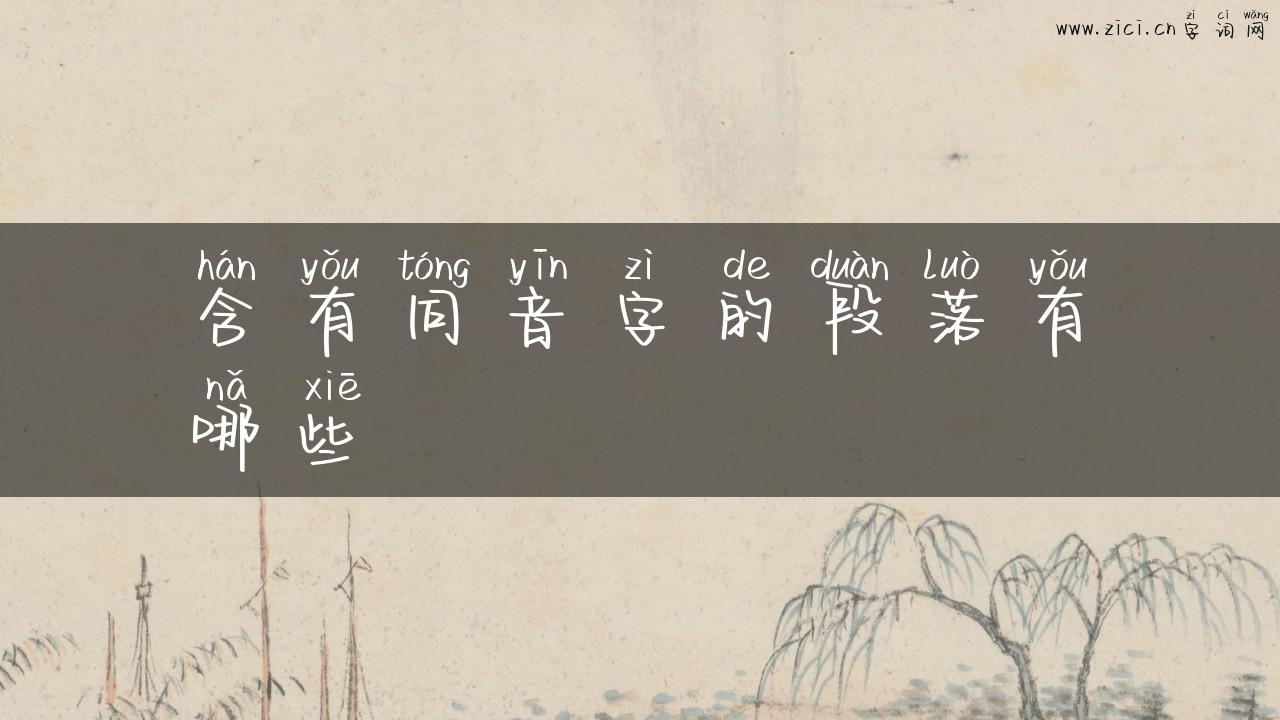 zì cí wǎng
www.zici.cn 字 词 网
hán yǒu tóng yīn zì de duàn luò yǒu
含 有 同 音 字 的 段 落 有
nǎ xiē
哪 些